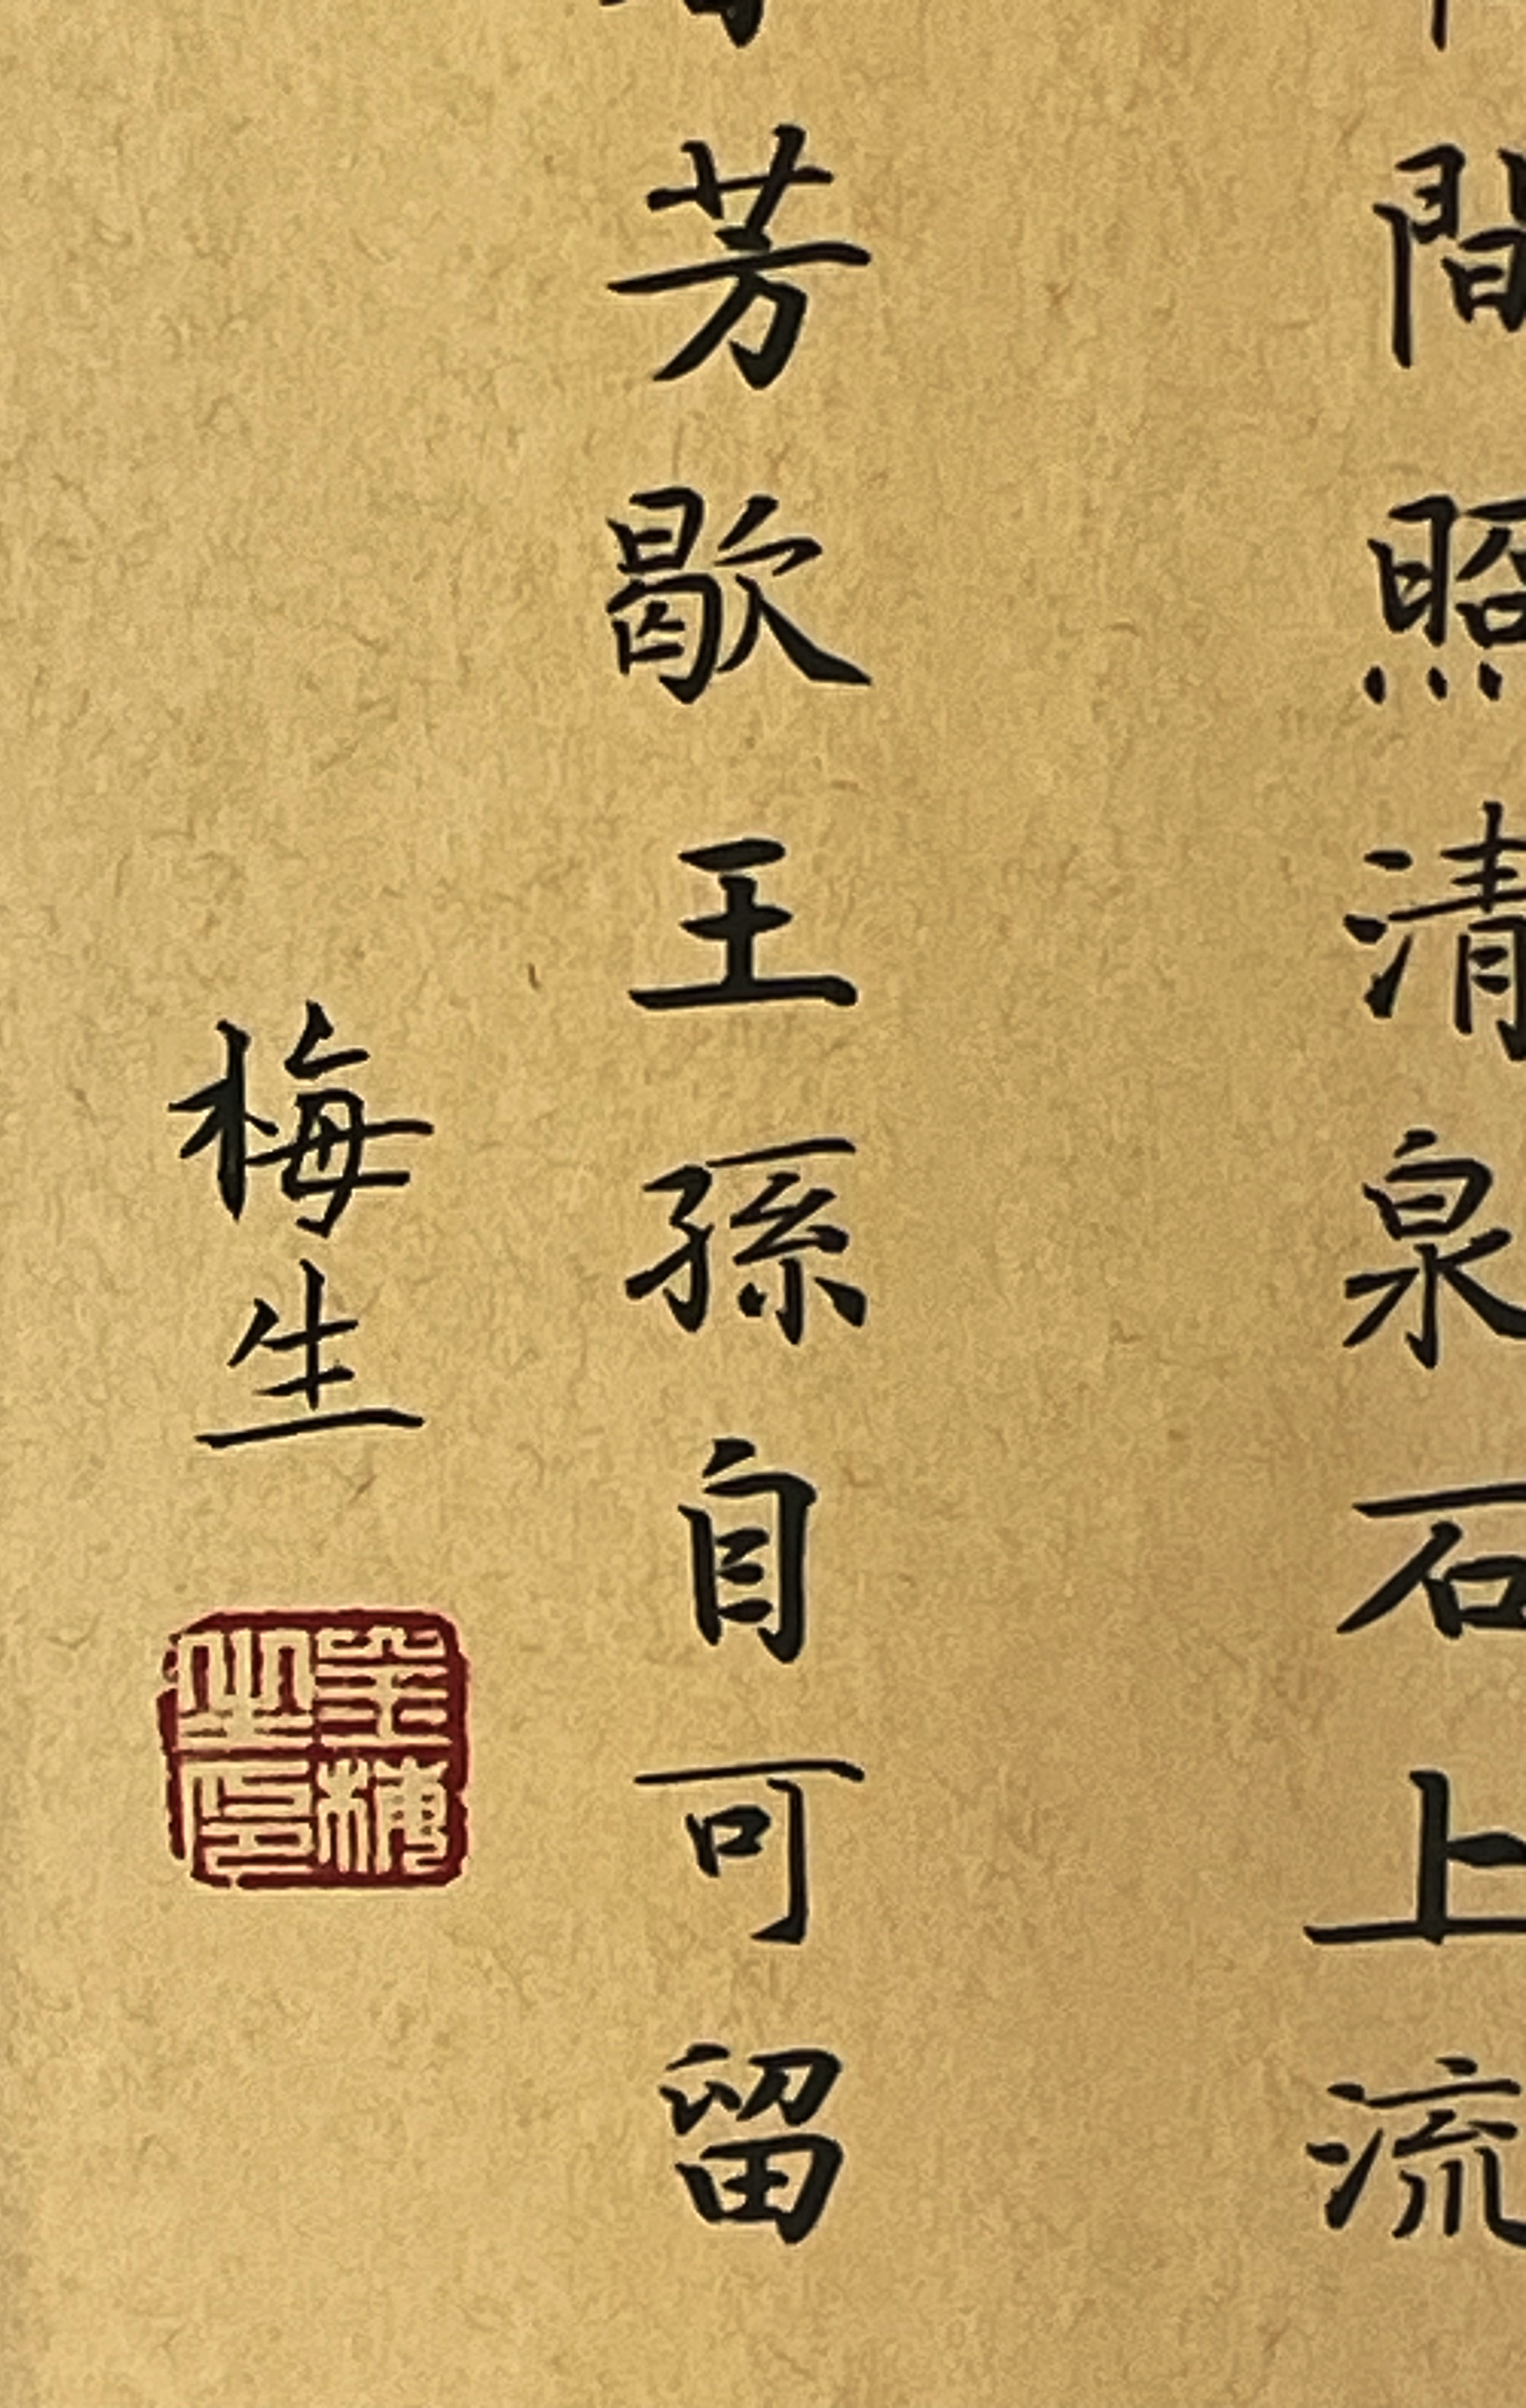 間照清泉石上流
芳歇王孫自可留
梅生
金梅生印